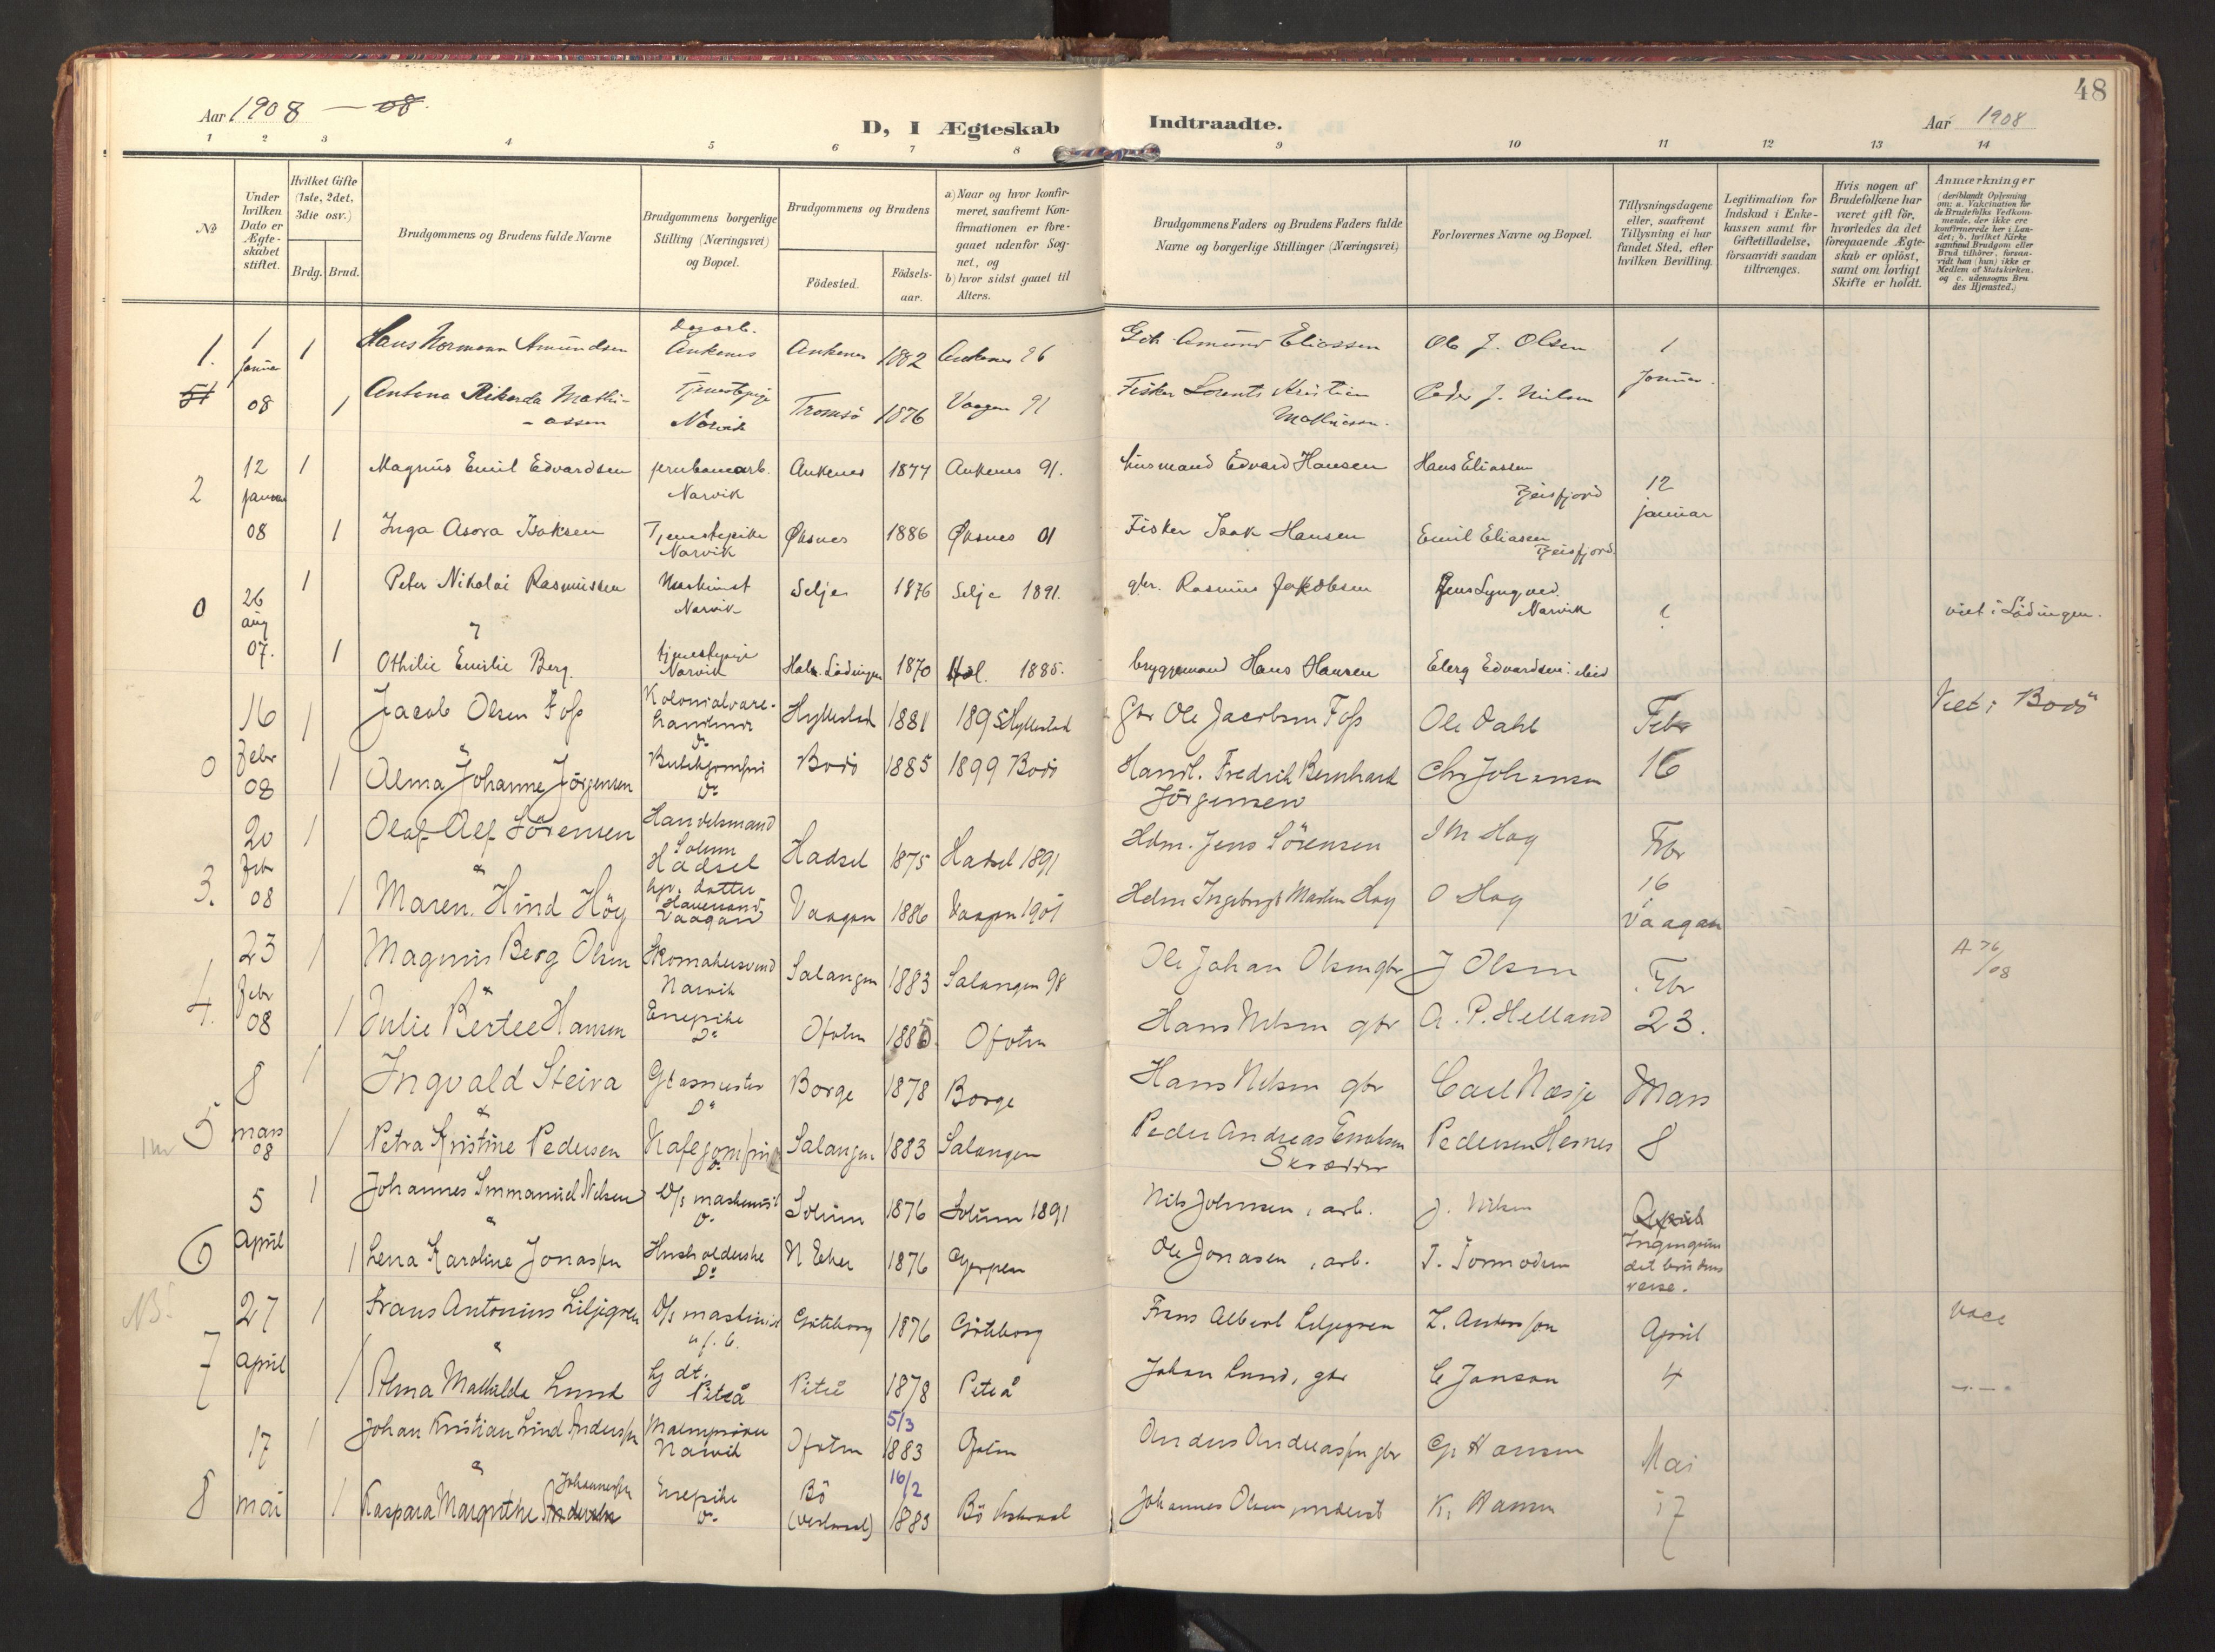 48
Aar 1908 — 08.
D, I Ægteskab Indtraadte.
Aar 1908
1 2 3 4 5 6 7 8 9 10 11 12 13 14
No
Under hvilken Dato er Ægteskabet stiftet.
Hvilket Gifte (1ste, 2det, 3die osv.)
Brdg. Brud.
Brudgommens og Brudens fulde Navne
Brudgommens borgerlige Stilling (Næringsvei) og Bopæl.
Brudgommens og Brudens
Födested.
Födsels-aar.
a) Naar og hvor konfirmeret, saafremt Konfirmationen er foregaaet udenfor Sognet, og
b) hvor sidst gaaet til Alters.
Brudgommens Faders og Brudens Faders fulde Navne og borgerlige Stillinger (Næringsvei)
Forlovernes Navne og Bopæl.
Tillysningsdagene eller, saafremt Tillysning ei har fundet Sted, efter hvilken Bevilling.
Legitimation for Indskud i Enkekassen samt for Giftetilladelse, forsaavidt saadan tiltrænges.
Hvis nogen af Brudefolkene har været gift för, hvorledes da det foregaaende Ægteskab er oplöst, samt om lovligt Skifte er holdt.
Anmærkninger
(deriblandt Oplysning om: a. Vakcination for de Brudefolks Vedkommende, der ikke ere konfirmerede her i Landet; b. hvilket Kirkesamfund Brudgom eller Brud tilhörer, forsaavidt han (hun) ikke er Medlem af Statskirken. og c. udensogns Brudes Hjemsted.)
1. 1 1 Hans Norman Amundsen Ankenes Ankenes 1882 Ankenes 96 Amund Eliassen Ole J. Olsen 1
Januar 08 1 Antona Rikarda Mathiassen Tjenestepige Narvik Tromsö 1876 Vaagan 91 Fisker Lorents Kristian Mathiassen. Peder J. Nielsen Januar.
2 12 1 Magnus Emil Edvardsen jernbanearb. Narvik Ankenes 1877 Ankenes 91. husmand Edvard Hansen Hans Eliassen Beisfjord 12
Januar 08 1 Inga Asora Isaksen Tjenestepike Narvik Øksnes 1886 Øksnes 01 Fisker Isak Hansen Emil Eliasen Beisfjord. januar
0 26 1 Peter Nikolai Rasmussen Maskinist Narvik Selje 1876 Selje 1891. gbr. Rasmus Jakobsen Jens Lyngved. Narvik viet i Lödingen.
aug 07. 1 Othilie Emilie Berg. tjenestepige Narvik Lödingen 1870 Hol. 1885. bryggemand Hans Hansen Elerg Edvardsen ibid
0 16 1 Jacob Olsen Foss Kolonialvarehandler Do Hyllestad 1881 1895 Hyllestad Gbr Ole Jacobsen Foss Ole Dahl Febr Viet i Bodö
Febr 08 1 & Alma Johanne Jörgensen Butikjomfru Do Bodö 1885 1899 Bodö Handl. Fredrik Bernhard Jörgensen Chr Johansen 16
3. 20 1 Olaf Alf Sörensen Handelsmand Hadsel Hadsel 1875 Hadsel 1891 Hdm. Jens Sörensen J M Hag Febr
Febr 08 1 & Maren Hind Höy Vaagan Vaagan 1886 Vaagan 1901 Hdm Ingebrigt Marten Hag O Hag 16 Vaagan
4. 23 1 Magnus Berg Olsen Skomakersvend Narvik Salangen 1883 Salangen 98 Ole Johan Olsen gbr J Olsen Febr A 76/08
Febr 08 1 & Julie Bertee Hansen Enepike Do Ofoten 1885 Ofoten Hans Nilsen gbr A. P. Helland 23.
5 8 1 Ingvald Steira Glasmester Do Borge 1878 Borge Hans Nilsen gbr Carl Næsje Mars
mars 08 1 & Petra Kristine Pedersen Kafejomfru Do Salangen 1883 Salangen Peder Andreas Skrædder Pedersen Hesnes 8
6 5 1 Johannes Immanuel Nilsen D/s maskinist Do Solum 1876 Solum 1891 Nils Johnsen, arb. J. Nilsen April
April 1 & Lena Karoline Jonassen Husholderske Do N Eker 1876 Gjerpen Ole Jonasen, arb. T. Tormodsen
NB. 7 27 1 Frans Antonius Liljegren D/s maskinist Göteborg 1876 Göteborg Frans Albert Liljegren L. Andersson April vacc
April 1 & Alma Mathilda Lund Piteå Piteå 1878 Piteå Johan Lund, gbr C Janson 4 —"—
8 17 1 Johan Kristian Lind Anderssen Malmprøver Narvik Ofoten 5/3 1883 Ofoten Anders Andreassen gbr G. Hansen Mai
mai 1 & Kaspara Margrethe Johannessen Andersen Enepike Do Bö (Vesteraal) 16/2 1883 Bö Vesteraal Johannes Olsen K. Hansen 17